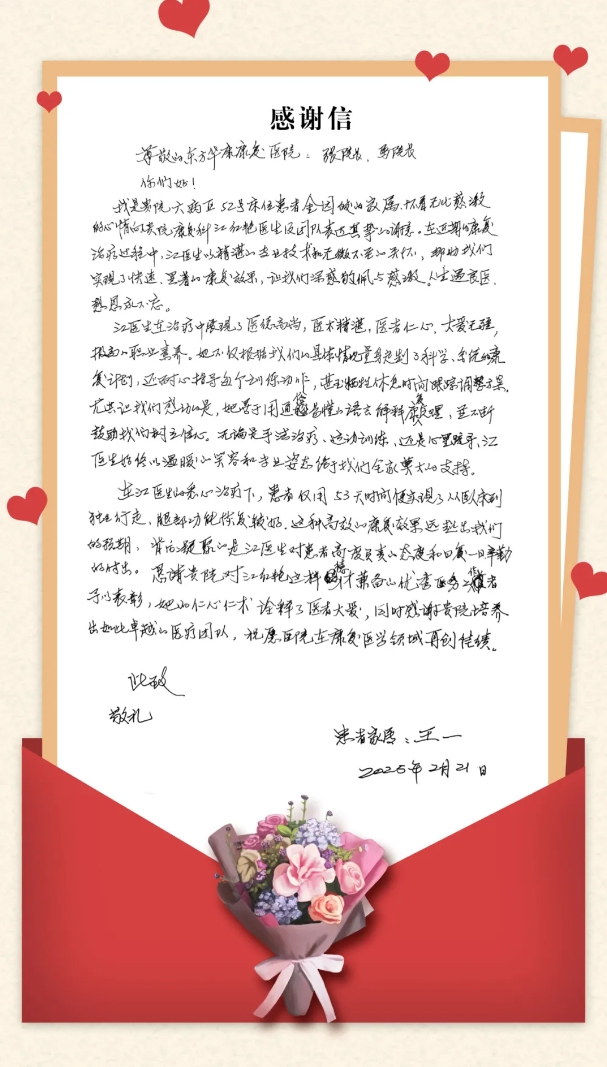 感谢信
尊敬的东方华康康复医院：张院长、马院长
你们好！
我是贵院六病区52号床位患者全国坡的家属，怀着无比感激
的心情向贵院康复科江红艳医生及团队表达真挚的谢意。在近期的康复
治疗过程中，江医生以精湛的专业技术和无微不至的关怀，帮助我们
实现了快速、显著的康复效果，让我们深感敬佩与感激。人生遇良医，
感恩永不忘。
江医生在治疗中展现了医德高尚，医术精湛，医者仁心，大爱无疆，
极高的职业素养。她不仅根据我们的具体情况量身定制了科学、系统的康
复计划，还耐心指导每个训练动作，甚至牺牲休息时间跟踪调整方案。
尤其让我们感动的是，她善于用通俗易懂的语言解释康复原理，并不断
鼓励我们树立信心。无论是手法治疗、运动训练，还是心里疏导，江
医生始终以温暖的笑容和专业姿态给予我们全家莫大的支撑。
在江医生的悉心治疗下，患者仅用53天时间便实现了从卧床到
独立行走，腿部功能恢复较好。这种高效的康复效果远超出我们
的预期，背后凝聚的是江医生对患者高度负责的态度和日复一日辛勤
的付出。恳请贵院对江红艳这样德才兼备的优秀医务工作者
予以表彰，她的仁心仁术诠释了医者大爱，同时感谢贵院培养
出如此卓越的医疗团队，祝愿医院在康复医学领域再创佳绩。
此致
敬礼
患者家属：王一
2025年2月21日